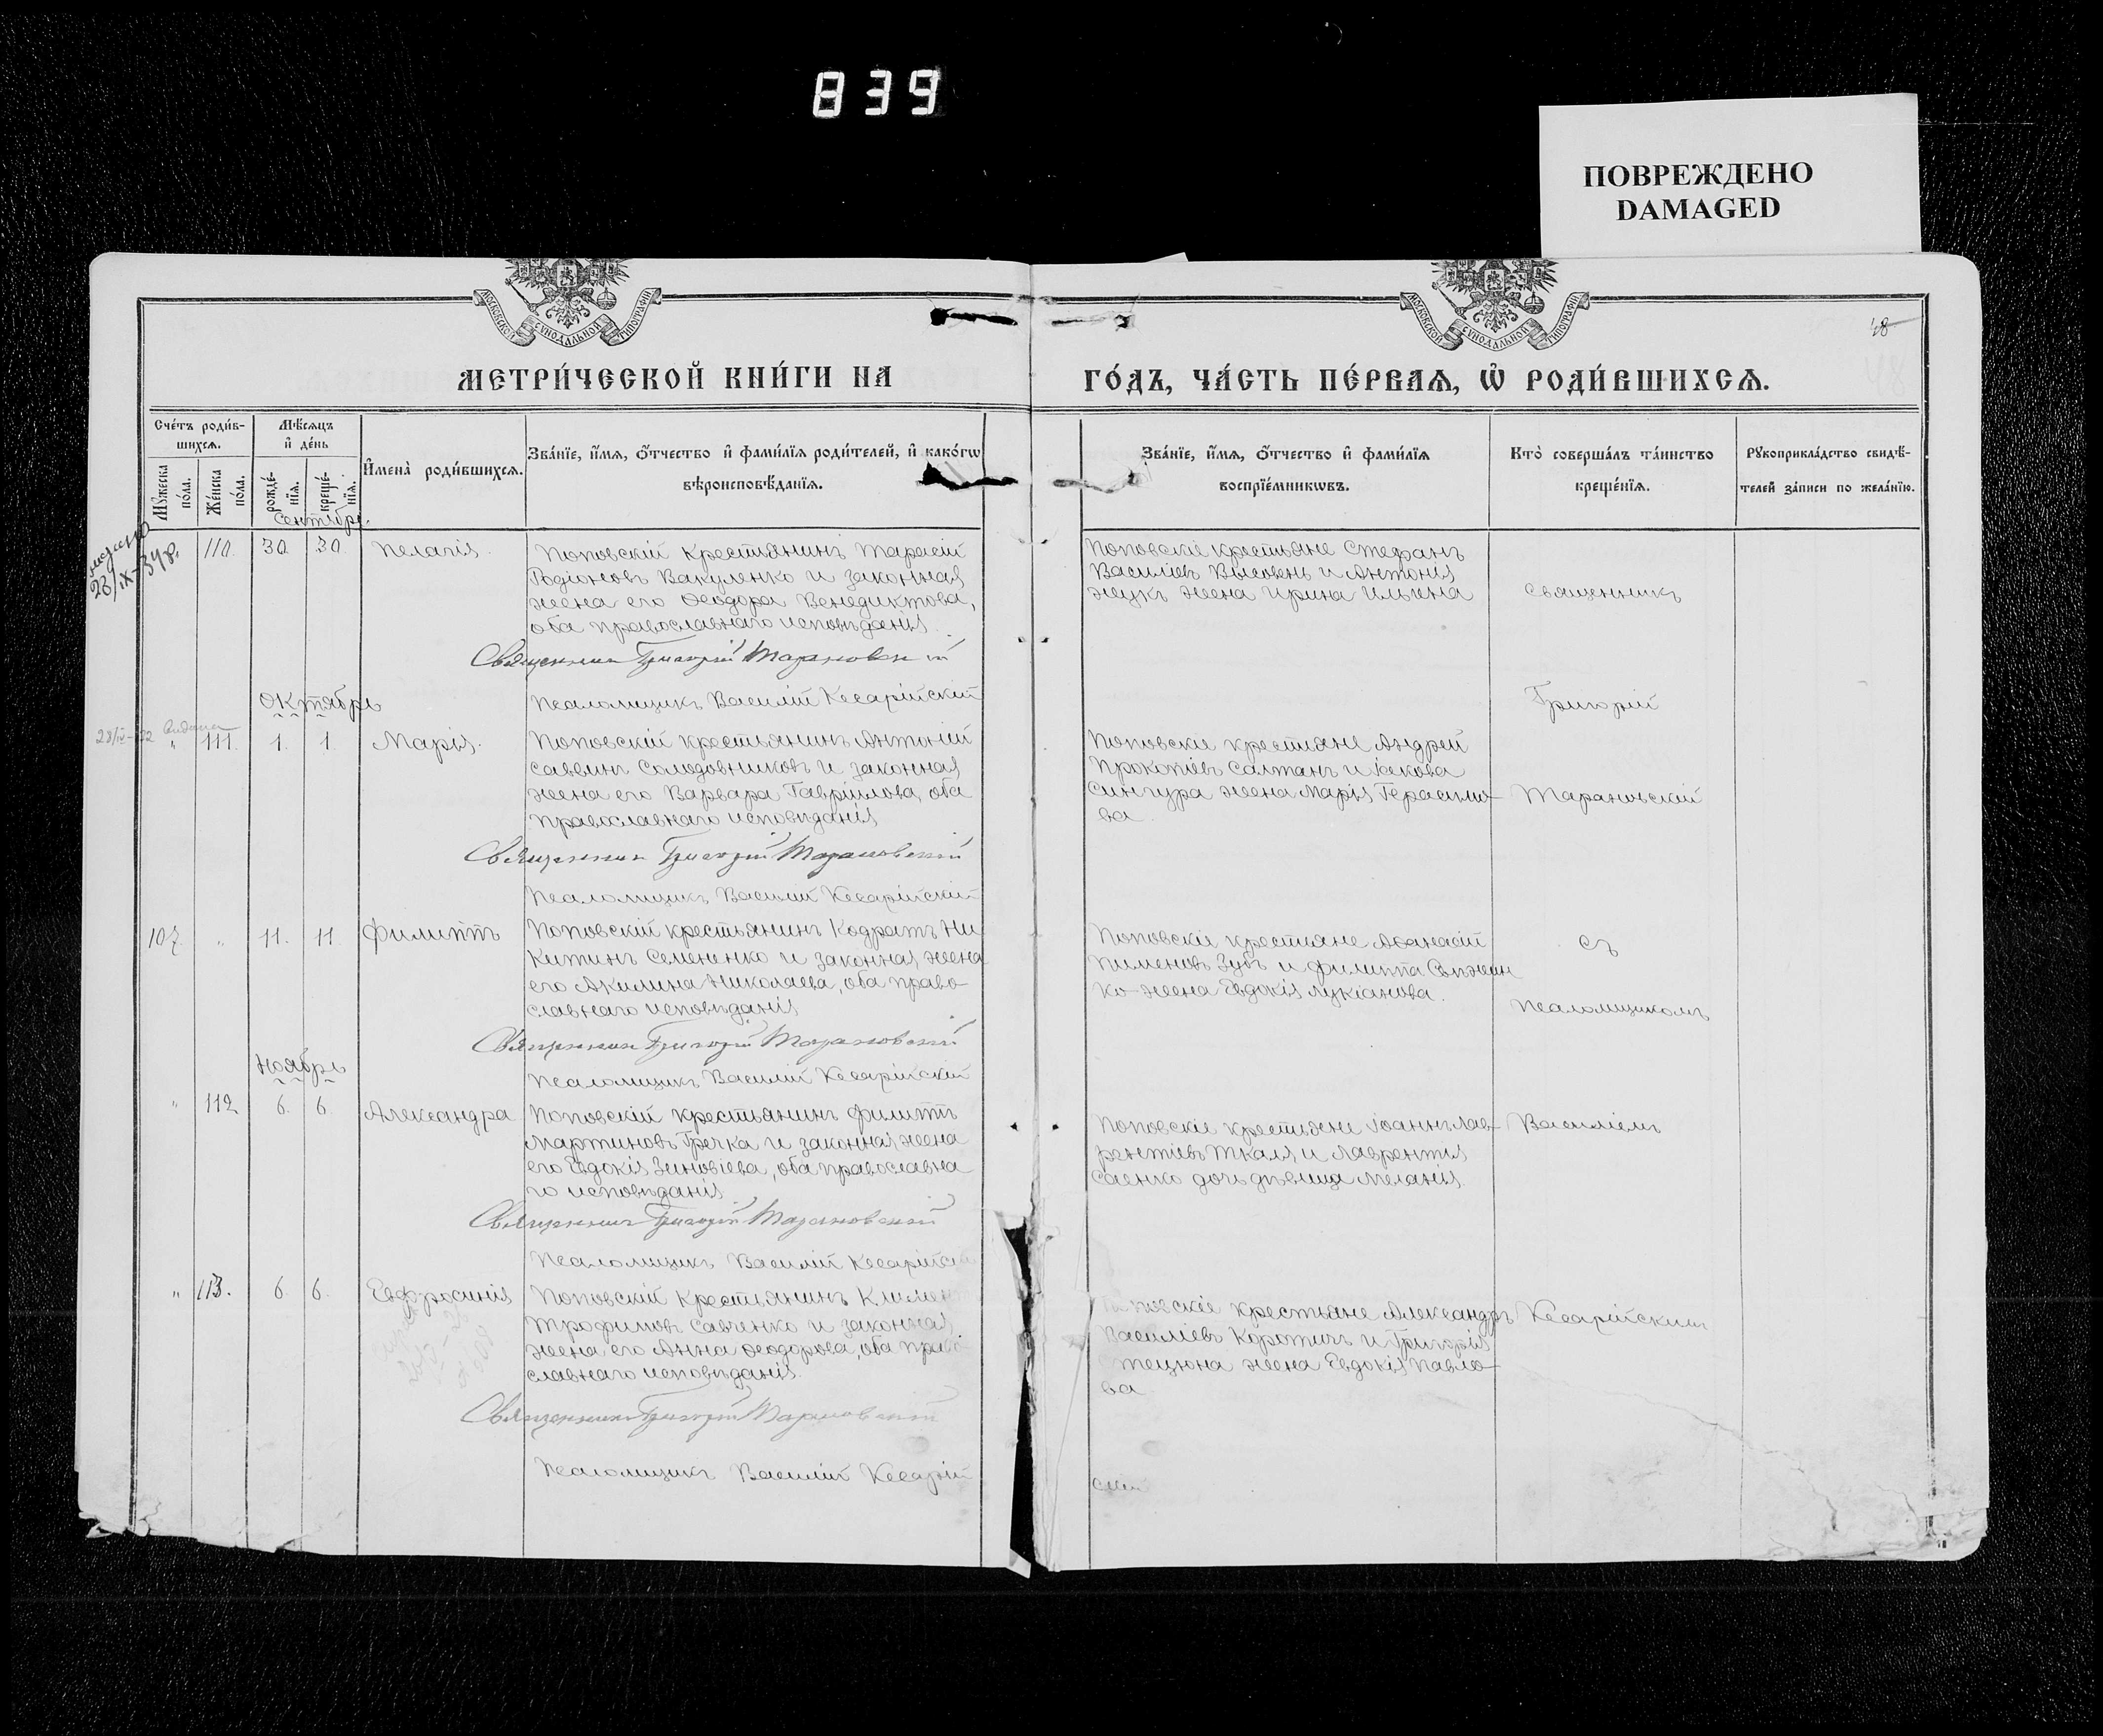 839
ПОВРЕЖДЕНО
DAMAGED
МОСКОВСКОЙ СѴНОДАЛЬНОЙ ТИПОГРАФІИ
МОСКОВСКОЙ СѴНОДАЛЬНОЙ ТИПОГРАФІИ
48
МЕТРИ́ЧЕСКОЙ КНИ́ГИ НА
ГО́ДЪ, ЧА́СТЬ ПЕ́РВАѦ, Ѿ РОДИ́ВШИХСѦ.
Сче́тъ роди́в-
шихсѧ.
Мꙋжеска по́ла.
Же́нска по́ла.
Мѣ́сѧцъ
и҆ де́нь
рожде́-
нїѧ.
креще́-
нїѧ.
И҆мена̀ роди́вшихсѧ.
Зва́нїе, и҆́мѧ, ѻ҆́тчество и҆ фами́лїѧ роди́телей, и҆ како́гѡ
вѣроисповѣ́данїѧ.
Зва́нїе, и҆́мѧ, ѻ҆́тчество и҆ фами́лїѧ
воспрїе́мникѡвъ.
Кто̀ соверша́лъ та́инство
креще́нїѧ.
Рꙋкоприкла́дство свидѣ́-
телей за́писи по жела́нїю.
Сентябрь.
23/IX-34 р.
110. 30. 30. Пелагія.
Поповскій крестьянинъ Тарасій
Родіоновъ Вакуленко и законная
жена его Ѳеодора Венедиктова,
оба православнаго исповѣданія.
Священникъ Григорій Тарановскій
Псаломщикъ Василій Кесарійскій
Поповскіе крестьяне Стефанъ
Василіевъ Высовень и Антонія
жена Ирина Ильина
Священникъ
Григорій
Октябрь
" 111. 1. 1. Марія.
Поповскій крестьянинъ Антоній
Саввинъ Солодовниковъ и законная
жена его Варвара Гавріилова, оба
православнаго исповѣданія
Священникъ Григорій Тарановскій
Псаломщикъ Василій Кесарійскій
Поповскіе крестьяне Андрей
Прокопіевъ Салтанъ и Іакова
Сингура жена Марія Герасимо-
ва.
Тарановскій
107. " 11. 11 Филиппъ
Поповскій крестьянинъ Кодратъ Ни
китинъ Семененко и законная жена
его Акилина Николаева, оба право-
славнаго исповѣданія
Священникъ Григорій Тарановскій
Псаломщикъ Василій Кесарійскій
Поповскіе крестьяне Аѳанасій
Пименовъ Зубъ и Филиппа
ко жена Евдокія Лукіанова.
съ
псаломщикомъ
Ноябрь
" 112 6. 6. Александра
Поповскій крестьянинъ Филиппъ
Мартиновъ Гречка и законная жена
его Евдокія Зиновіева, оба православна
го исповѣданія
Священникъ Григорій Тарановскій
Псаломщикъ Василій Кесарійскій
Поповскіе крестьяне Іоаннъ Лав-
рентіевъ Ткаля и Лаврентія
Саенко дочь дѣвица Меланія.
Василіемъ
" 113. 6. 6. Евфросинія
Поповскій крестьянинъ Климен
Трофимовъ Савченко и законная
жена его Анна Ѳеодорова, оба право
славнаго исповѣданія.
Священникъ Григорій Тарановскій
Псаломщикъ Василій Кесарій
скій
повскіе крестьяне Александръ
Василіевъ Коротичъ и Григорія
Стецюна жена Евдокія Павло-
ва
Кесарійскимъ